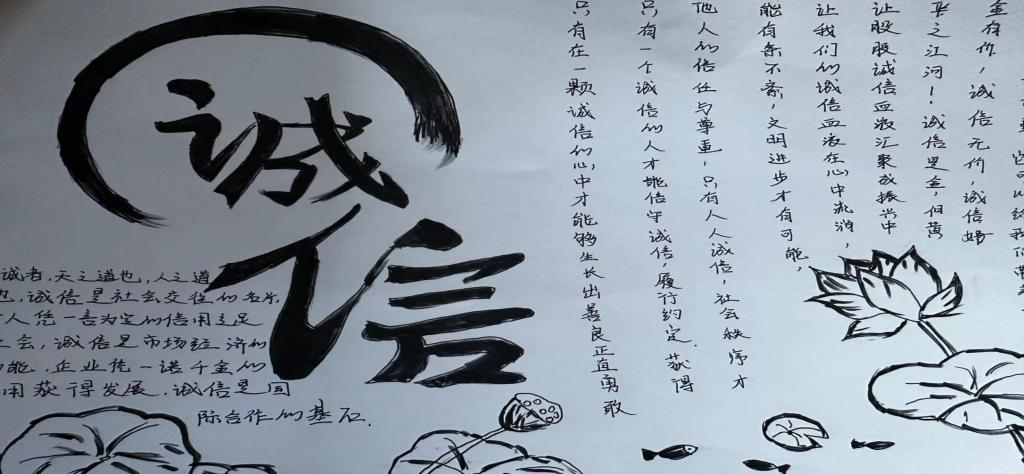 诚信
诚者，天之道也，人之道
也，诚信是社会交往的名片，
人凭一言为定的信用立足
社会，诚信是市场经济的
能，企业凭一诺千金的
用获得发展，诚信是国
际合作的基石.
只有在一颗诚信的心，中才能够生长出善良正直勇敢
只有一个诚信的人才能信守诚信，履行约定.获得
他人的信任与尊重，只有人人诚信，社会秩序才
能有条不紊，文明进步才有可能，
让我们的诚信血液在心中流淌，
让股股诚信血液汇聚成振兴中
华之江河！诚信是金，但黄
金有价，诚信无价，诚信好
皆可以给我们带来